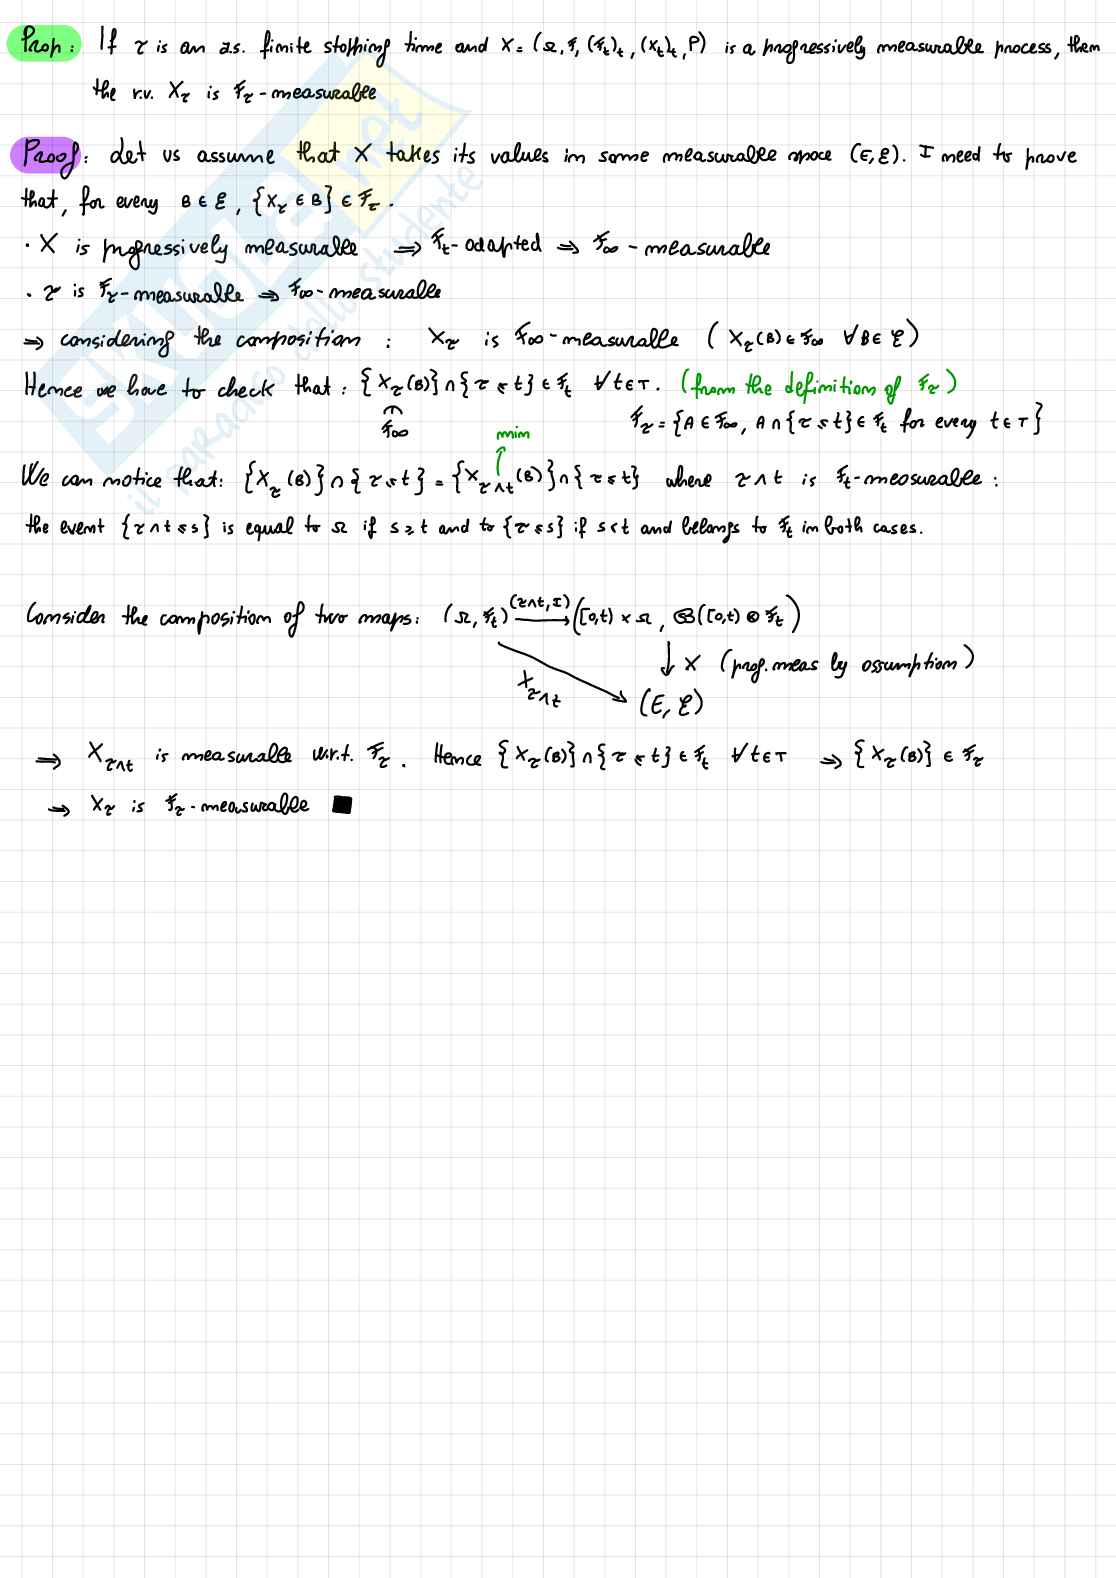 Prop: If τ is an a.s. finite stopping time and X = (Ω, F, (F_t)_t, (X_t)_t, P) is a progressively measurable process, then
the r.v. X_τ is F_τ-measurable
Proof: Let us assume that X takes its values in some measurable space (E, ℰ). I need to prove
that, for every B ∈ ℰ, {X_τ ∈ B} ∈ F_τ.
· X is progressively measurable ⇒ F_t-adapted ⇒ F_∞-measurable
· τ is F_τ-measurable ⇒ F_∞-measurable
⇒ considering the composition: X_τ is F_∞-measurable (X_τ(B) ∈ F_∞ ∀B ∈ ℰ)
Hence we have to check that: {X_τ(B)} ∩ {τ ≤ t} ∈ F_t ∀t ∈ T. (from the definition of F_τ)
F_∞
F_τ = {A ∈ F_∞, A ∩ {τ ≤ t} ∈ F_t for every t ∈ T}
min
We can notice that: {X_τ(B)} ∩ {τ ≤ t} = {X_{τ∧t}(B)} ∩ {τ ≤ t} where τ∧t is F_t-measurable:
the event {τ∧t ≤ s} is equal to Ω if s ≥ t and to {τ ≤ s} if s < t and belongs to F_t in both cases.
Consider the composition of two maps: (Ω, F_t) (τ∧t, I) → ([0,t) × Ω, B([0,t) ⊗ F_t)
↓ X (prog. meas by assumption)
X_{τ∧t} (E, ℰ)
⇒ X_{τ∧t} is measurable w.r.t. F_τ. Hence {X_τ(B)} ∩ {τ ≤ t} ∈ F_t ∀t ∈ T ⇒ {X_τ(B)} ∈ F_τ
⇒ X_τ is F_τ-measurable ■